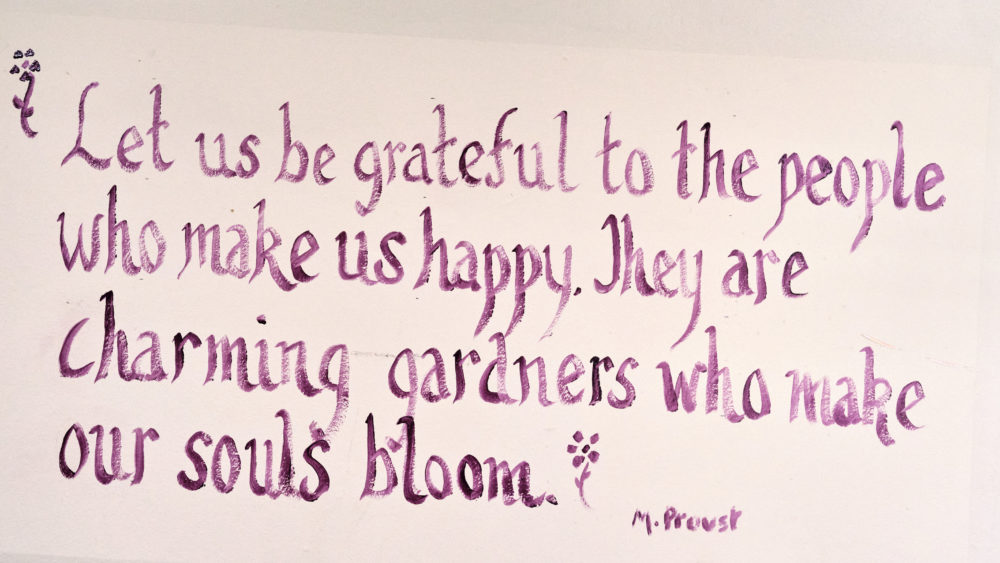 Let us be grateful to the people
who make us happy. They are
charming gardners who make
our souls bloom.
M. Proust